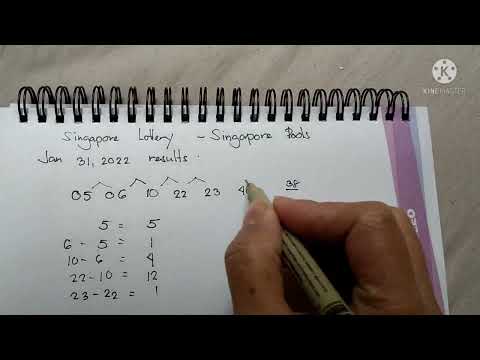 KINEMASTER
Singapore Lottery - Singapore Pools
Jan 31, 2022 results.
05 06 10 22 23 4 38
5 = 5
6 - 5 = 1
10 - 6 = 4
22 - 10 = 12
23 - 22 = 1